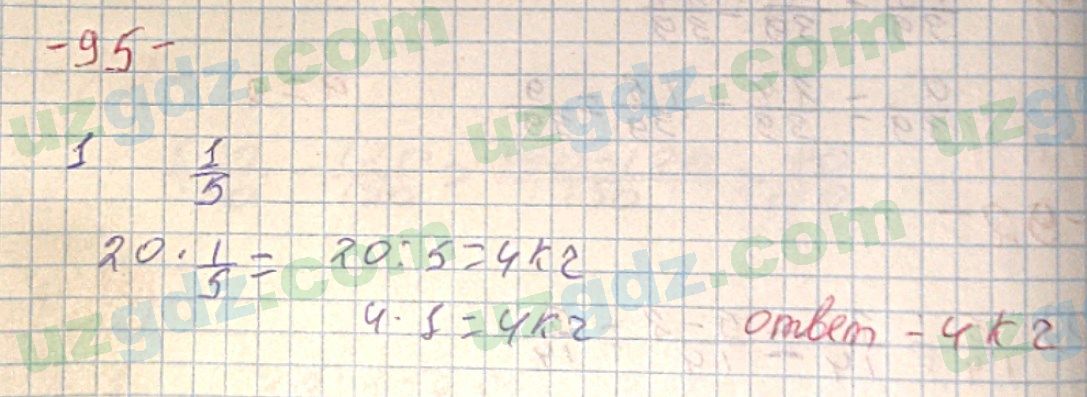 -95-
1 1/5
20 · 1/5 = 20 : 5 = 4 кг
4 · 1 = 4 кг ответ - 4 кг
uzgdz.com
uzgdz.com
uzgdz.com
uzgdz.com
uzgdz.com
uzgdz.com